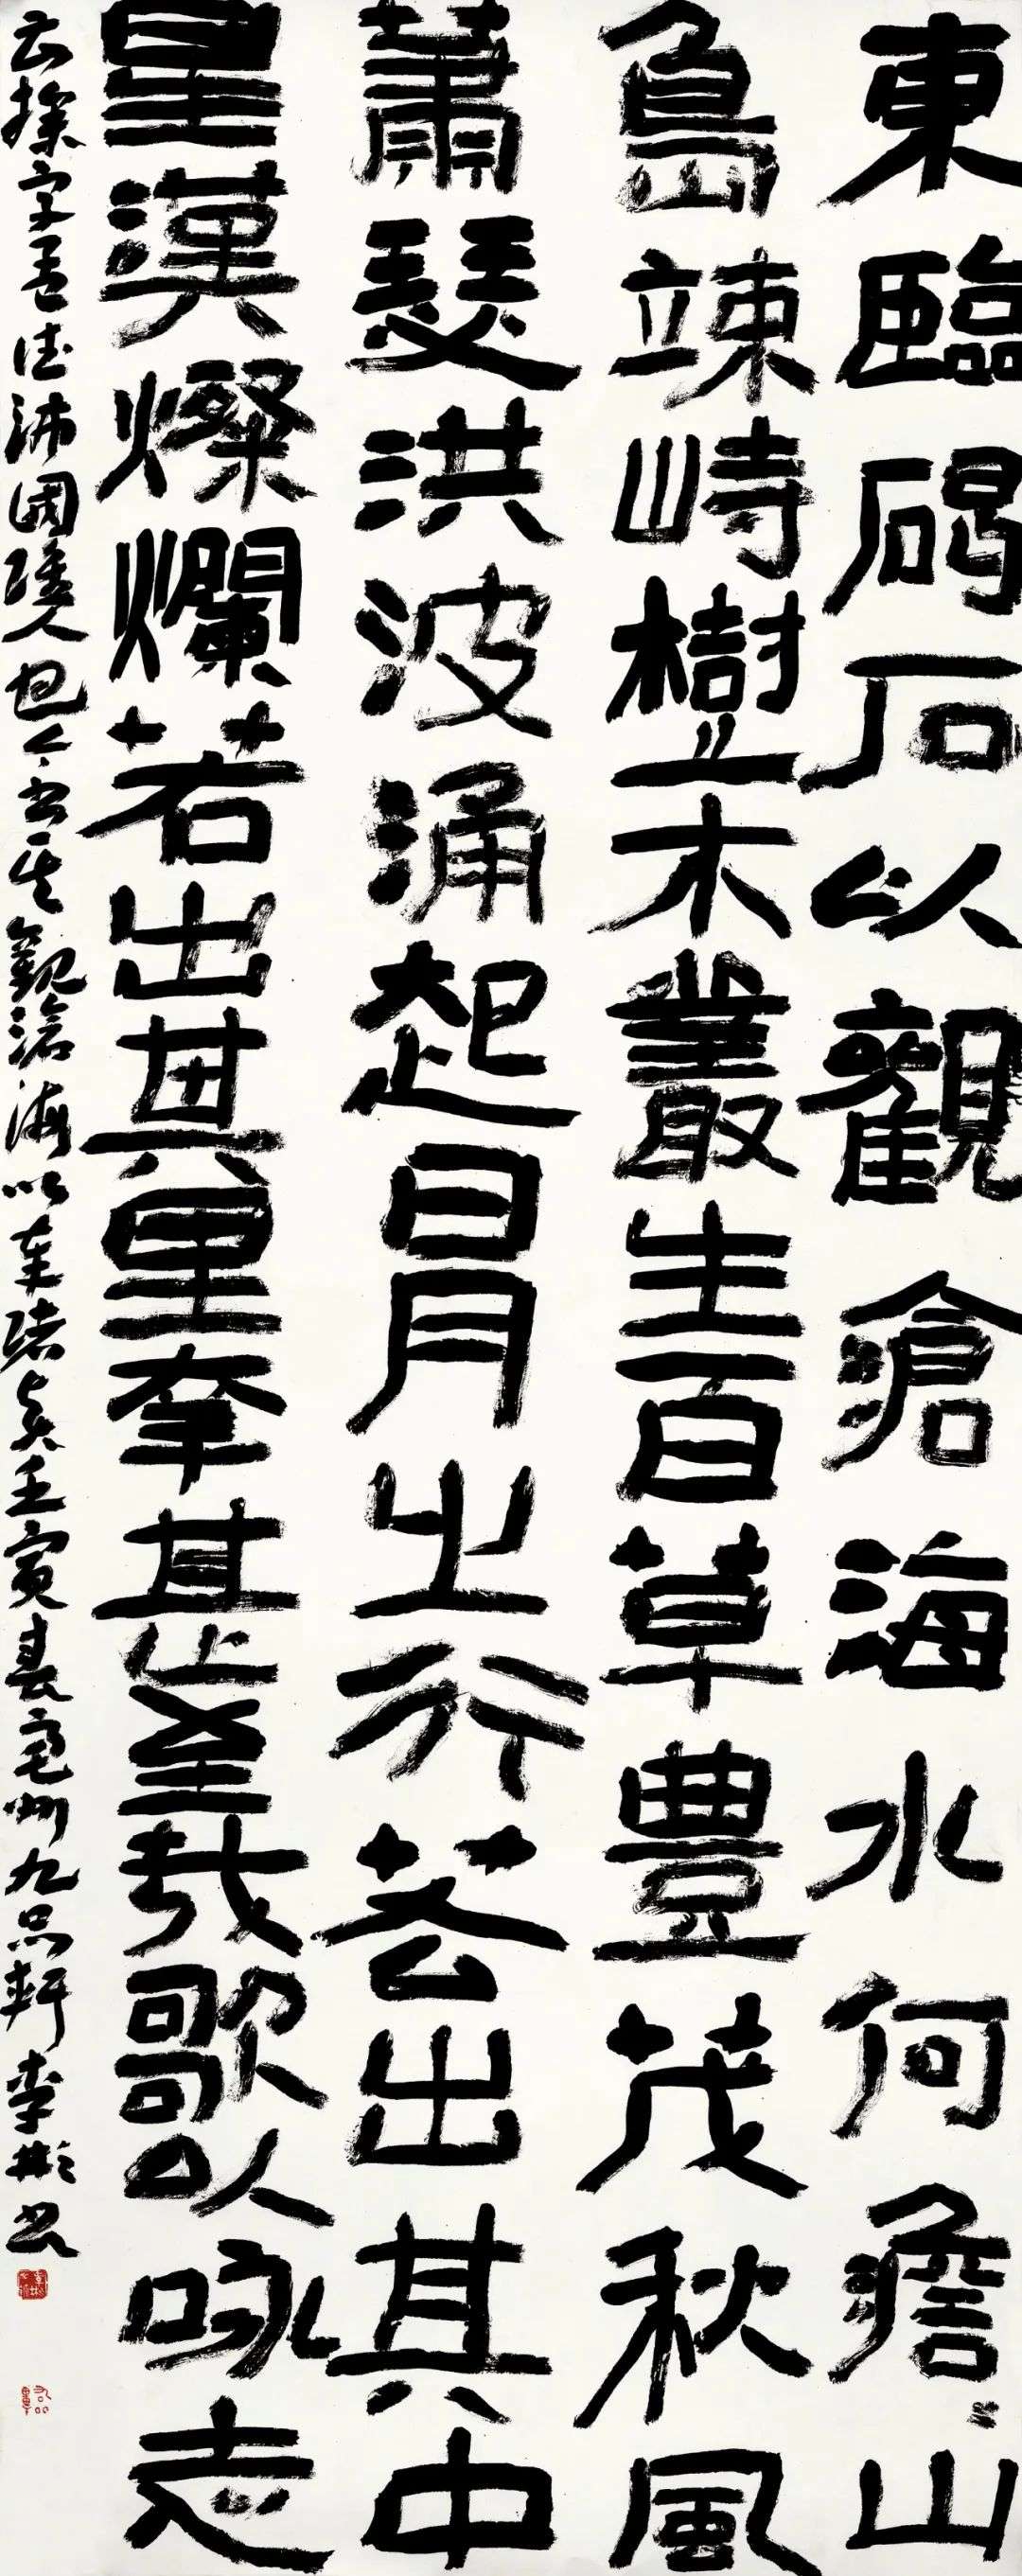 東臨碣石以觀滄海水何澹〻山
島竦峙樹木叢生百草豐茂秋風
蕭瑟洪波涌起日月之行若出其中
星漢燦爛若出其里幸甚至哉歌以咏志
操字孟德沛國譙人也今書其觀滄海以奉壬寅春亳州九品軒李彬書